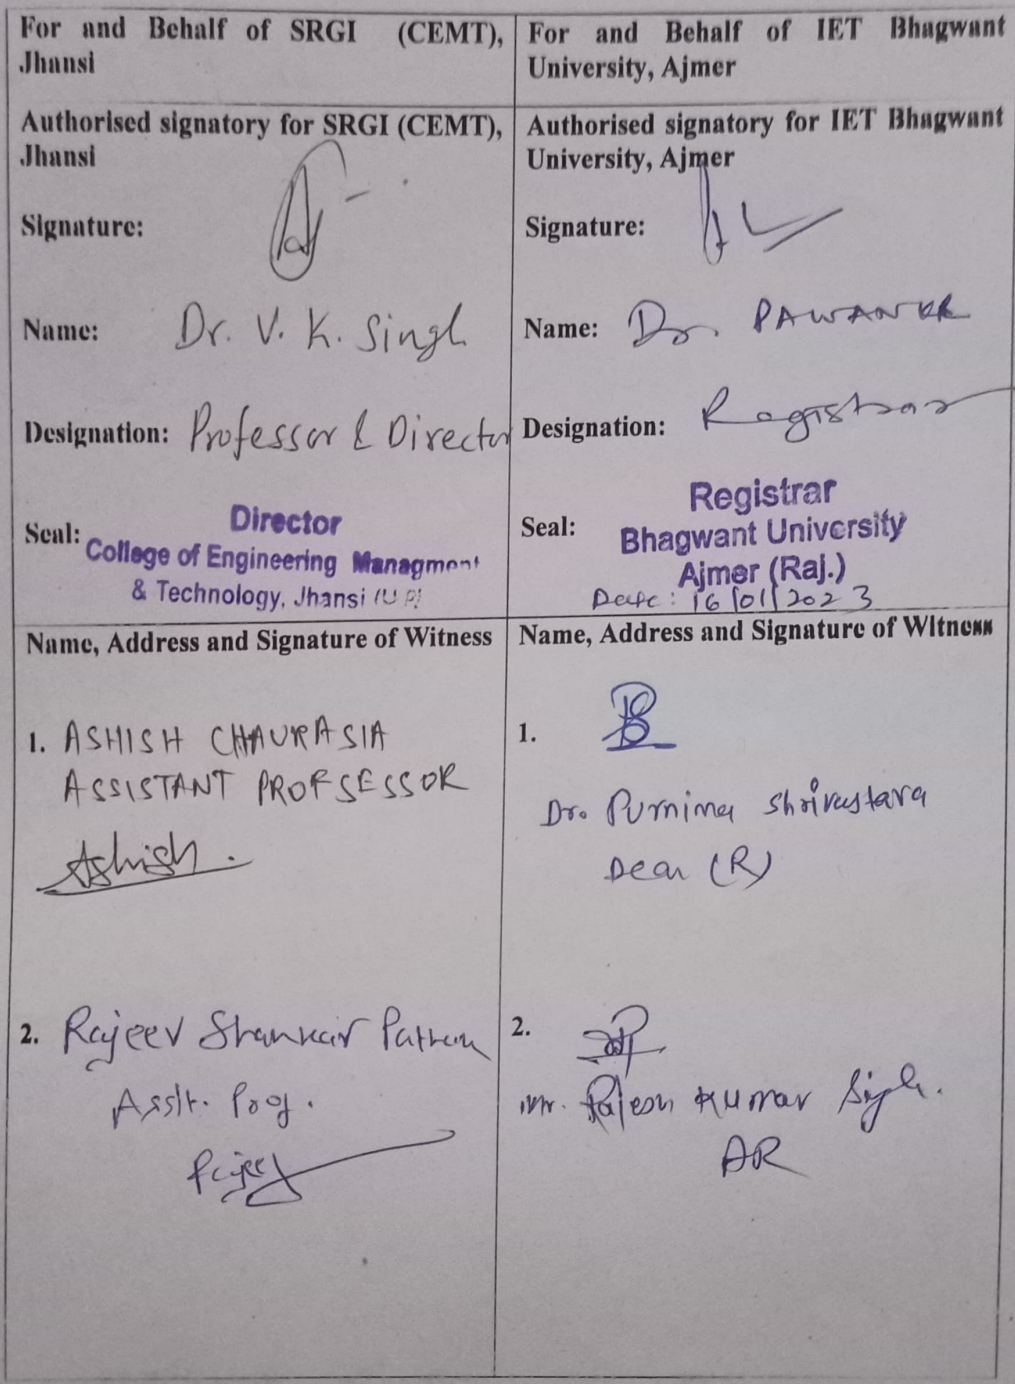 For and Behalf of SRGI (CEMT),
Jhansi
Authorised signatory for SRGI (CEMT),
Jhansi
Signature:
Name: Dr. V. K. Singh
Designation: Professor & Director
Seal: Director
College of Engineering Managment
& Technology, Jhansi (U.P)
Name, Address and Signature of Witness
1. ASHISH CHAURASIA
ASSISTANT PROFSESSOR
Ashish.
2. Rajeev Shankar Pathak
Asstt. Prof.
Rajeev
For and Behalf of IET Bhagwant
University, Ajmer
Authorised signatory for IET Bhagwant
University, Ajmer
Signature:
Name: Dr. PAWAN KR
Designation: Registrar
Seal: Registrar
Bhagwant University
Ajmer (Raj.)
Date: 16/01/2023
Name, Address and Signature of Witness
1.
Dr. Purnima Shrivastava
Dean (R)
2.
Mr. Rajesh Kumar Singh.
AR